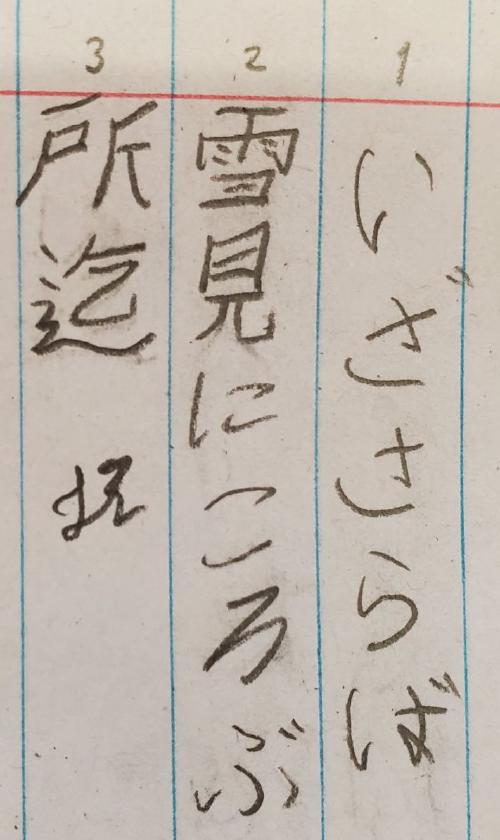 1 いざさらば
2 雪見にころぶ
3 所迄